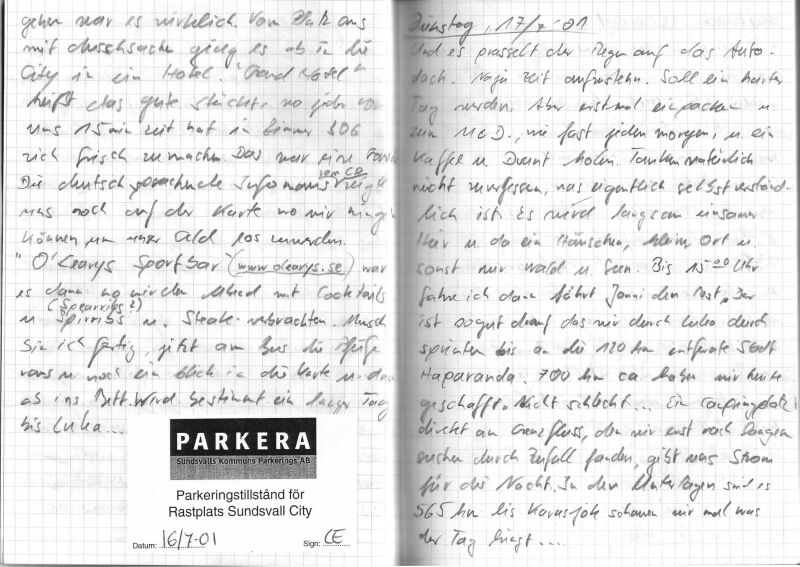 gehen war es wirklich. Vom Platz aus
mit duschsachen ging es ab in die
City in ein Hotel. "Grand Hotel"
heißt das gute Stück, wo
uns 15 min zeit hat in Zimmer 306
sich frisch zu machen. Das war eine
Die deutsch sprechende vom CP zeigte
uns noch auf der Karte wo wir hinge
können um unser Geld los zu werden.
"O'Learys Sportbar" (www.olearys.se) war
es dann wo wir den Abend mit Cocktails
(Spearribs?)
u Spirribs u. Steake verbrachten. Mensch
bin ich fertig, jetzt am Bus die
raus u noch ein blick in die Karte u dann
ab ins Bett. Wird bestimmt ein langer Tag
bis Luka...
PARKERA
Sundsvalls Kommuns Parkerings AB
Parkeringstillstånd för
Rastplats Sundsvall City
Datum: 16/7-01 Sign: CE
Dienstag, 17/7-01
Und es prasselt der Regen auf das Auto-
dach. Naja zeit aufzustehn. Soll ein harter
Tag werden. Aber erstmal einpacken u.
zum McD., wie fast jeden morgen, u. ein
Kaffee u Dount holen. Tanken natürlich
nicht vergessen, was eigentlich selbstverständ-
lich ist. Es wird langsam einsamer
Hier u. da ein Häuschen, kleiner Ort u.
sonst nur wald u. Seen. Bis 15 00 Uhr
fahre ich dann fährt Janni den rest. Der
ist sogut drauf das wir durch Luka durch
sprinten bis an die 120 km entfernte Stadt
Haparanda. 700 km ca haben wir heute
geschafft. Nicht schlecht... Ein Campingplatz
direkt am Grenzfluss, den wir erst nach langem
suchen durch Zufall fanden, gibt uns Strom
für die Nacht. In den Unterlagen sind es
565 km bis Karasjok schauen wir mal was
der Tag bringt....